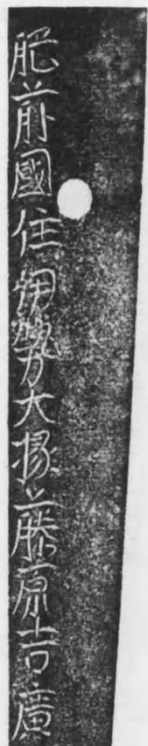 肥前國住伊勢大掾藤原吉廣